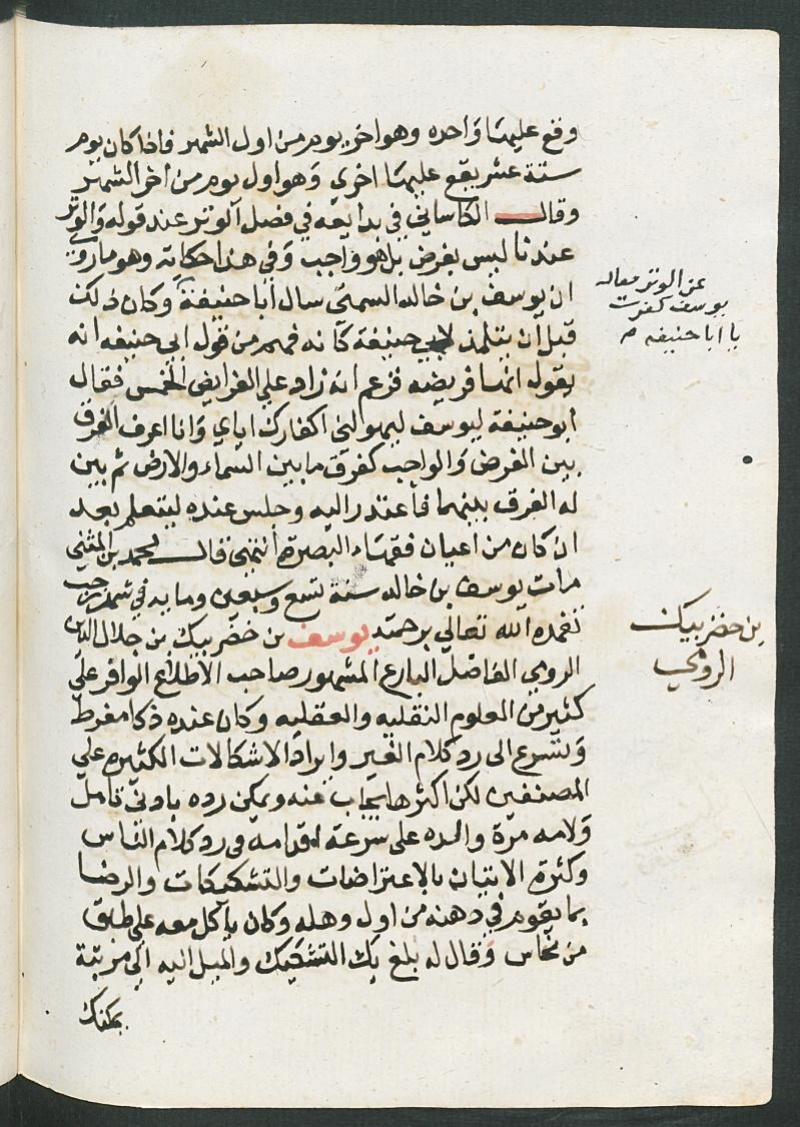 وقع عليها واحده وهو اخر يوم من اول الشهر فاذا كان يوم
ستة عشر يقع عليها اخري وهو اول يوم من اخر الشهر
وقال الكاساني في بدايعه في فصل الوتر عند قوله والوتر
عندنا ليس بفرض بل هو واجب وفي هذا حكاية وهو ما روي
ان يوسف بن خالد السمتي سال ابا حنيفة وكان ذلك
قبل ان يتلمذ لابي حنيفة كانه فهم من قول ابي حنيفه انه
يقول انها فريضه فزعم انه زاد علي الفرايض الخمس فقال
ابو حنيفة ليوسف ايهولني اكفارك اياي وانا اعرف الفرق
بين الفرض والواجب كفرق ما بين السماء والارض ثم بين
له الفرق بينهما فاعتذر اليه وجلس عنده ليتعلم بعد
ان كان من اعيان فقهاء البصرة انتهي قال محمد بن المثني
مات يوسف بن خالد سنة تسع وسبعين ومايه في شهر رجب
تغمده الله تعالي برحمته يوسف بن خضر بيك بن جلال الدين
الرومي الفاضل البارع المشهور صاحب الاطلاع الوافر علي
كثير من العلوم النقليه والعقليه وكان عنده ذكا مفرط
وتسرع الى رد كلام الغير وايراد الاشكالات الكثيره علي
المصنفين لكن اكثرها يجاب عنه ويمكن رده بادني تامل
ولامه مرة والده على سرعة اقدامه في رد كلام الناس
وكثرة الاتيان بالاعتراضات والتشكيكات والرضا
بما يقوم في دهنه من اول وهله وكان ياكل معه علي طبق
من نحاس وقال له بلغ بك التشكيك والميل اليه الي مرتبة
يمكنك
عن الوتر فقاله
يوسف كفرت
يا ابا حنيفه
بن خضر بيك
الرومي